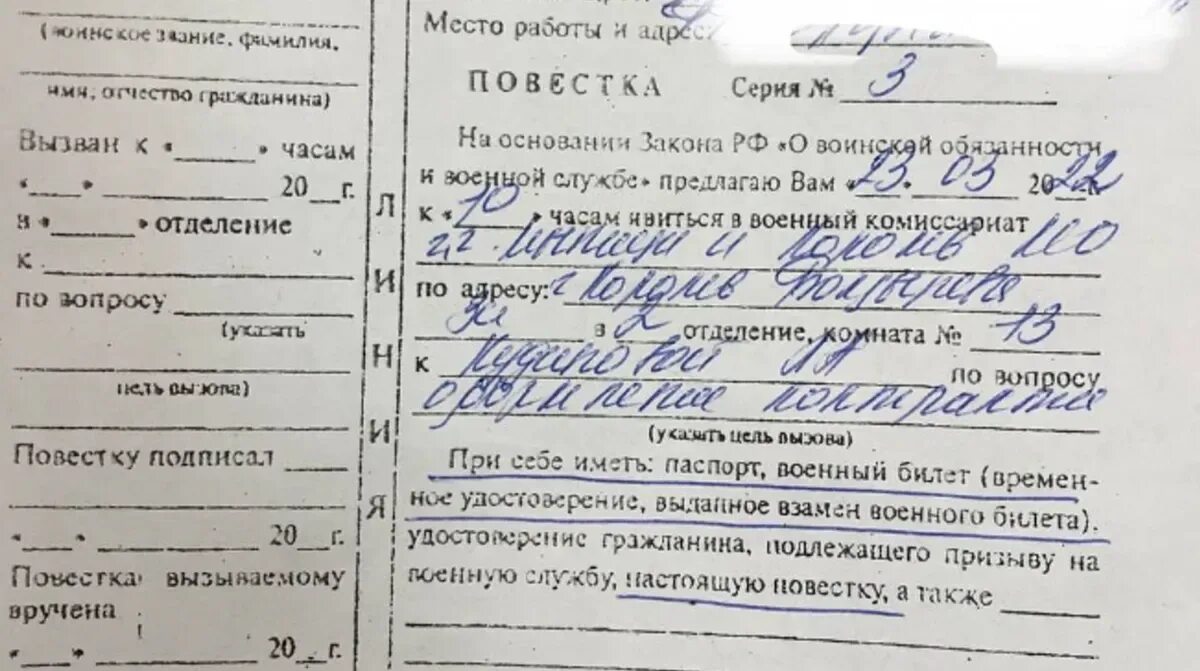 (воинское звание, фамилия,
имя, отчество гражданина)
Вызван к «____» часам
«___» ________ 20__г.
в «____» отделение
к ________
по вопросу ________
(указать
цель вызова)
Повестку подписал ____
«___» ________ 20__г.
Повестка вызываемому
вручена
«___» ________ 20__г.
ЛИНИЯ
Место работы и адрес:
ПОВЕСТКА Серия № 3
На основании Закона РФ «О воинской обязанности
и военной службе» предлагаю Вам «23» 03 2022 г.
к «10» часам явиться в военный комиссариат
гг. Мытищи и Королев МО
по адресу: г Королев Болдырева
в 2 отделение, комната № 13
к Кудиновой ЛА по вопросу
оформление контракта
(указать цель вызова)
При себе иметь: паспорт, военный билет (времен-
ное удостоверение, выданное взамен военного билета),
удостоверение гражданина, подлежащего призыву на
военную службу, настоящую повестку, а также ________